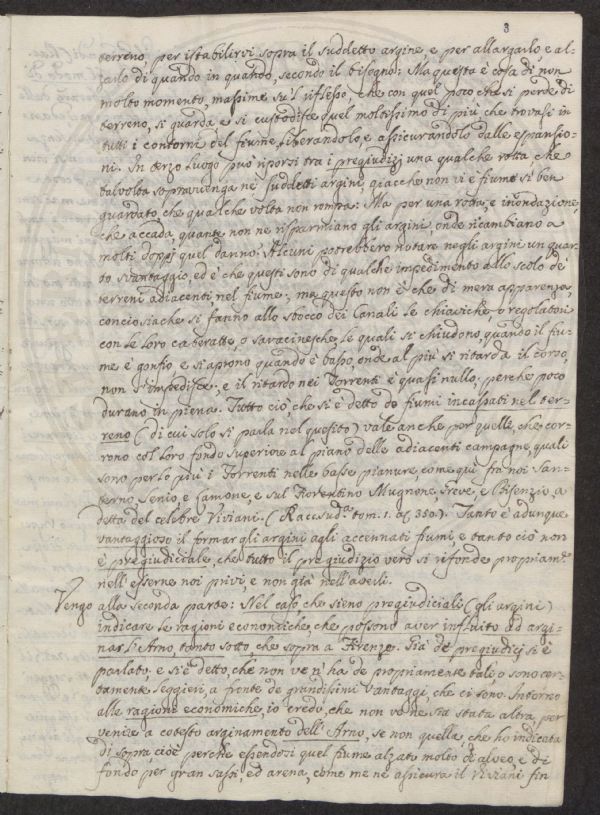 3
terreno, per istabilirvi sopra il suddetto argine, e per allargarlo e al=
zarlo di quando in quando, secondo il bisogno: Ma questa è cosa di non
molto momento, massime su'l riflesso, che con quel poco che si perde di
terreno, si guarda, e si custodisce quel moltissimo di più che trovasi in
tutti i contorni del fiume, liberandolo, e assicurandolo dalle espansio=
ni. In terzo luogo può riporsi tra i pregiudizj una qualche rotta che
talvolta sopravvenga ne' suddetti argini, giacche non vi è fiume sì ben
guardato, che qualche volta non rompa: Ma per una rotta, e inondazione,
che accada, quante non ne risparmiano gli argini, onde ricambiano a
molti doppj quel danno. Alcuni potrebbero notare negli argini un quar=
to svantaggio, ed è che questi sono di qualche impedimento allo scolo de'
terreni adiacenti nel fiume; ma questo non è che di mera apparenza,
conciosiache si fanno allo sbocco dei Canali le chiaviche, o regolatori
con le loro cateratte, o saracinesche, le quali si chiudono, quando il fiu=
me è gonfio, e si aprono quando è basso, onde al più si ritarda il corso,
non s'impedisce, e il ritardo nei Torrenti è quasi nullo, perche poco
durano in piena. Tutto ciò, che si è detto de' fiumi incassati nel ter=
reno (di cui solo si parla nel quesito) vale anche per quelli, che cor=
rono col loro fondo superiore al piano delle adiacenti campagne, quali
sono per lo più i Torrenti nelle basse pianure, come quì fra noi San=
terno, Senio, e Lamone, e sul Fiorentino Mugnone, Greve, e Bisenzio, a
detta del celebre Viviani. (Racc. sud.ª tom. 1. 350.). Tanto è adunque
vantaggioso il formar gli argini agli accennati fiumi, e tanto ciò non
è pregiudiciale, che tutto il pregiudizio vero si rifonde propriam.e
nell'esserne noi privi, e non già nell'averli.
Vengo alla seconda parte: Nel caso che sieno pregiudiciali (gli argini)
indicare le ragioni economiche, che possono aver influito ad argi=
nar l'Arno, tanto sotto, che sopra a Firenze. Già de' pregiudicj si è
parlato, e si è detto, che non ve n'ha de propriamente tali, o sono cer=
tamente leggieri, a fronte de grandissimi vantaggi, che ci sono. Intorno
alle ragioni economiche, io credo, che non ve ne sia stata altra, per
venire a cotesto arginamento dell'Arno, se non quella, che ho indicata
di sopra, cioè perche essendosi quel fiume alzato molto di alveo, e di
fondo per gran sassi, ed arena, come me ne assicura il Viviani fin